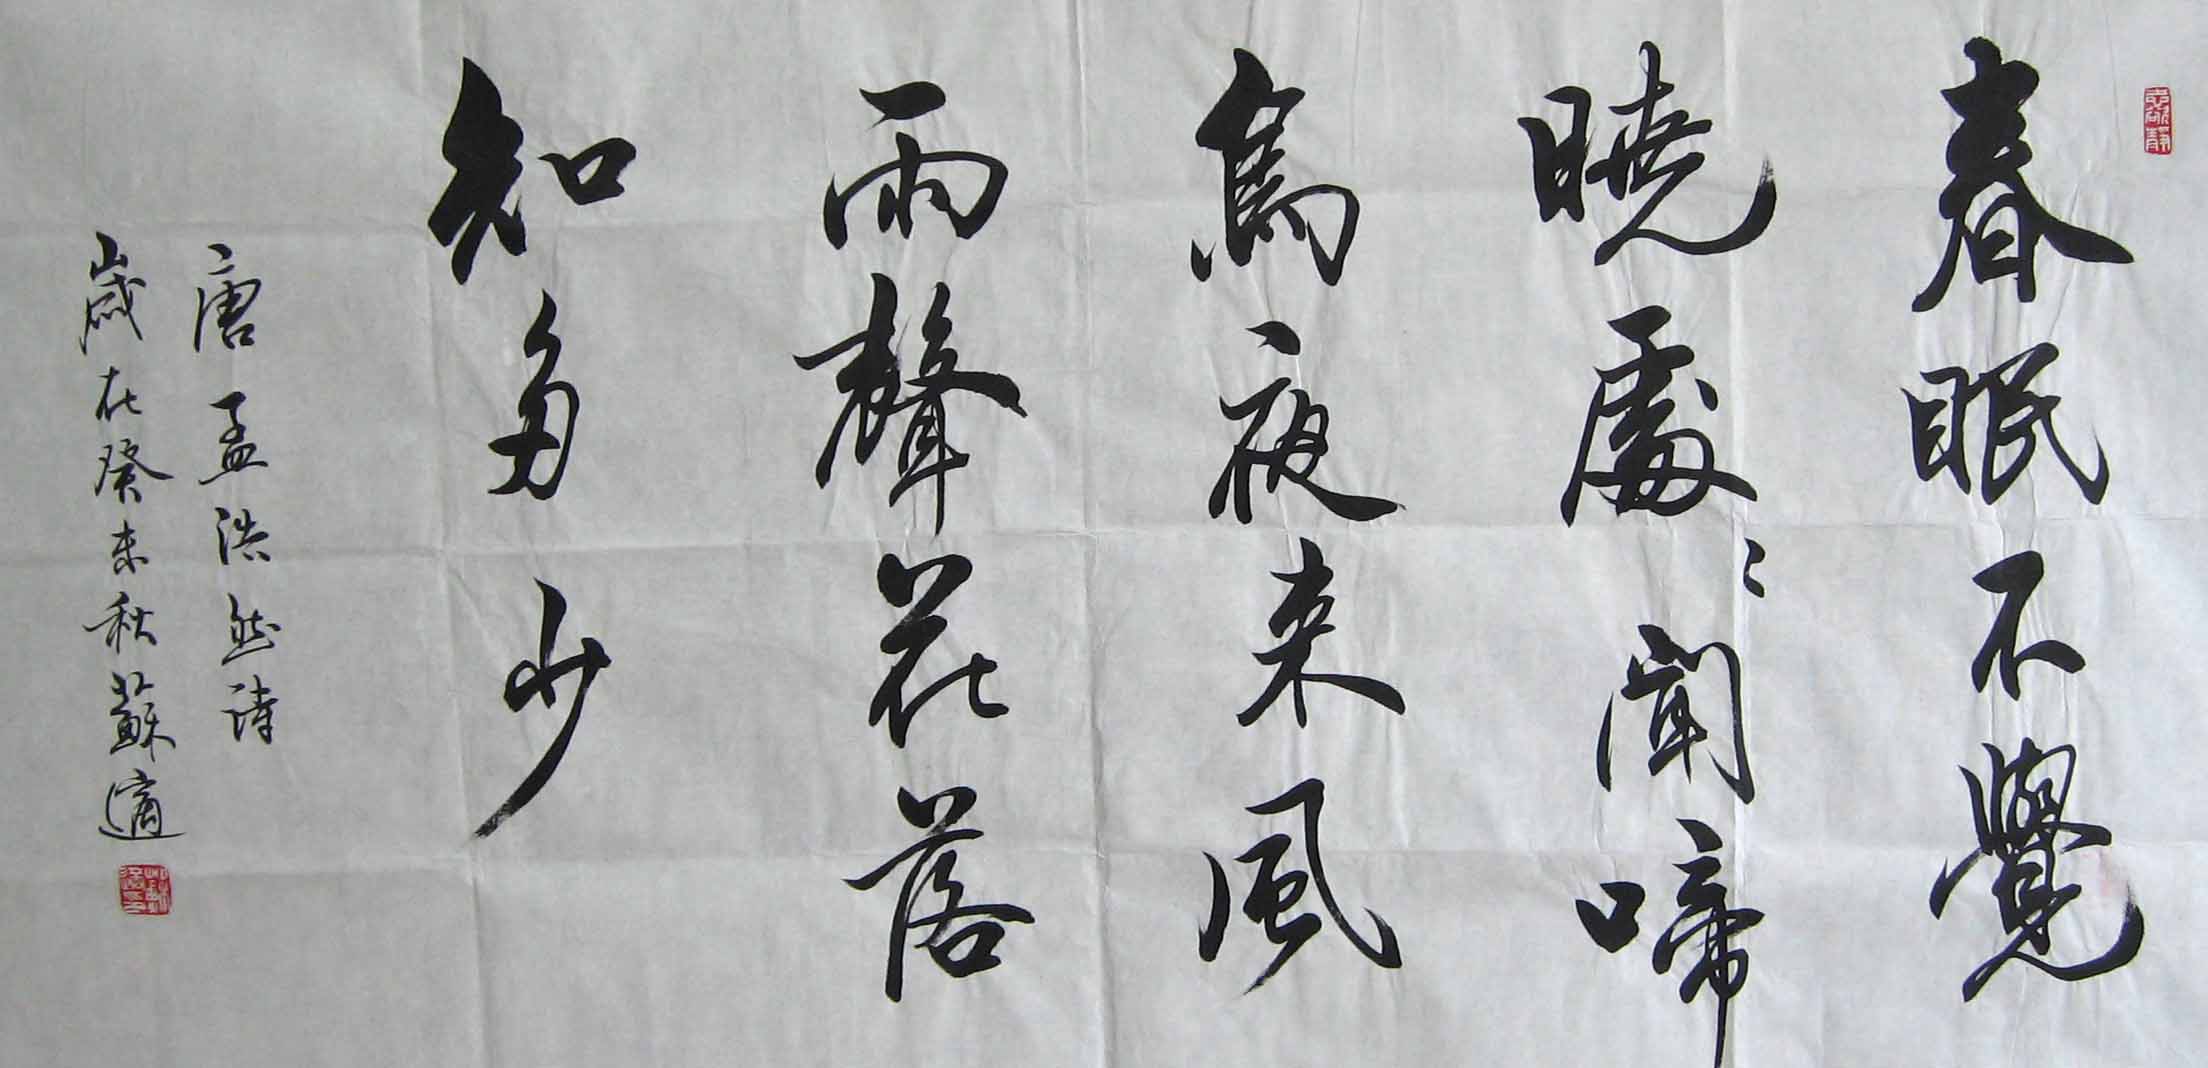 春眠不覺
曉處〻聞啼
鳥夜来風
雨聲花落
知多少
唐孟浩然詩
歲在癸未秋蘇適